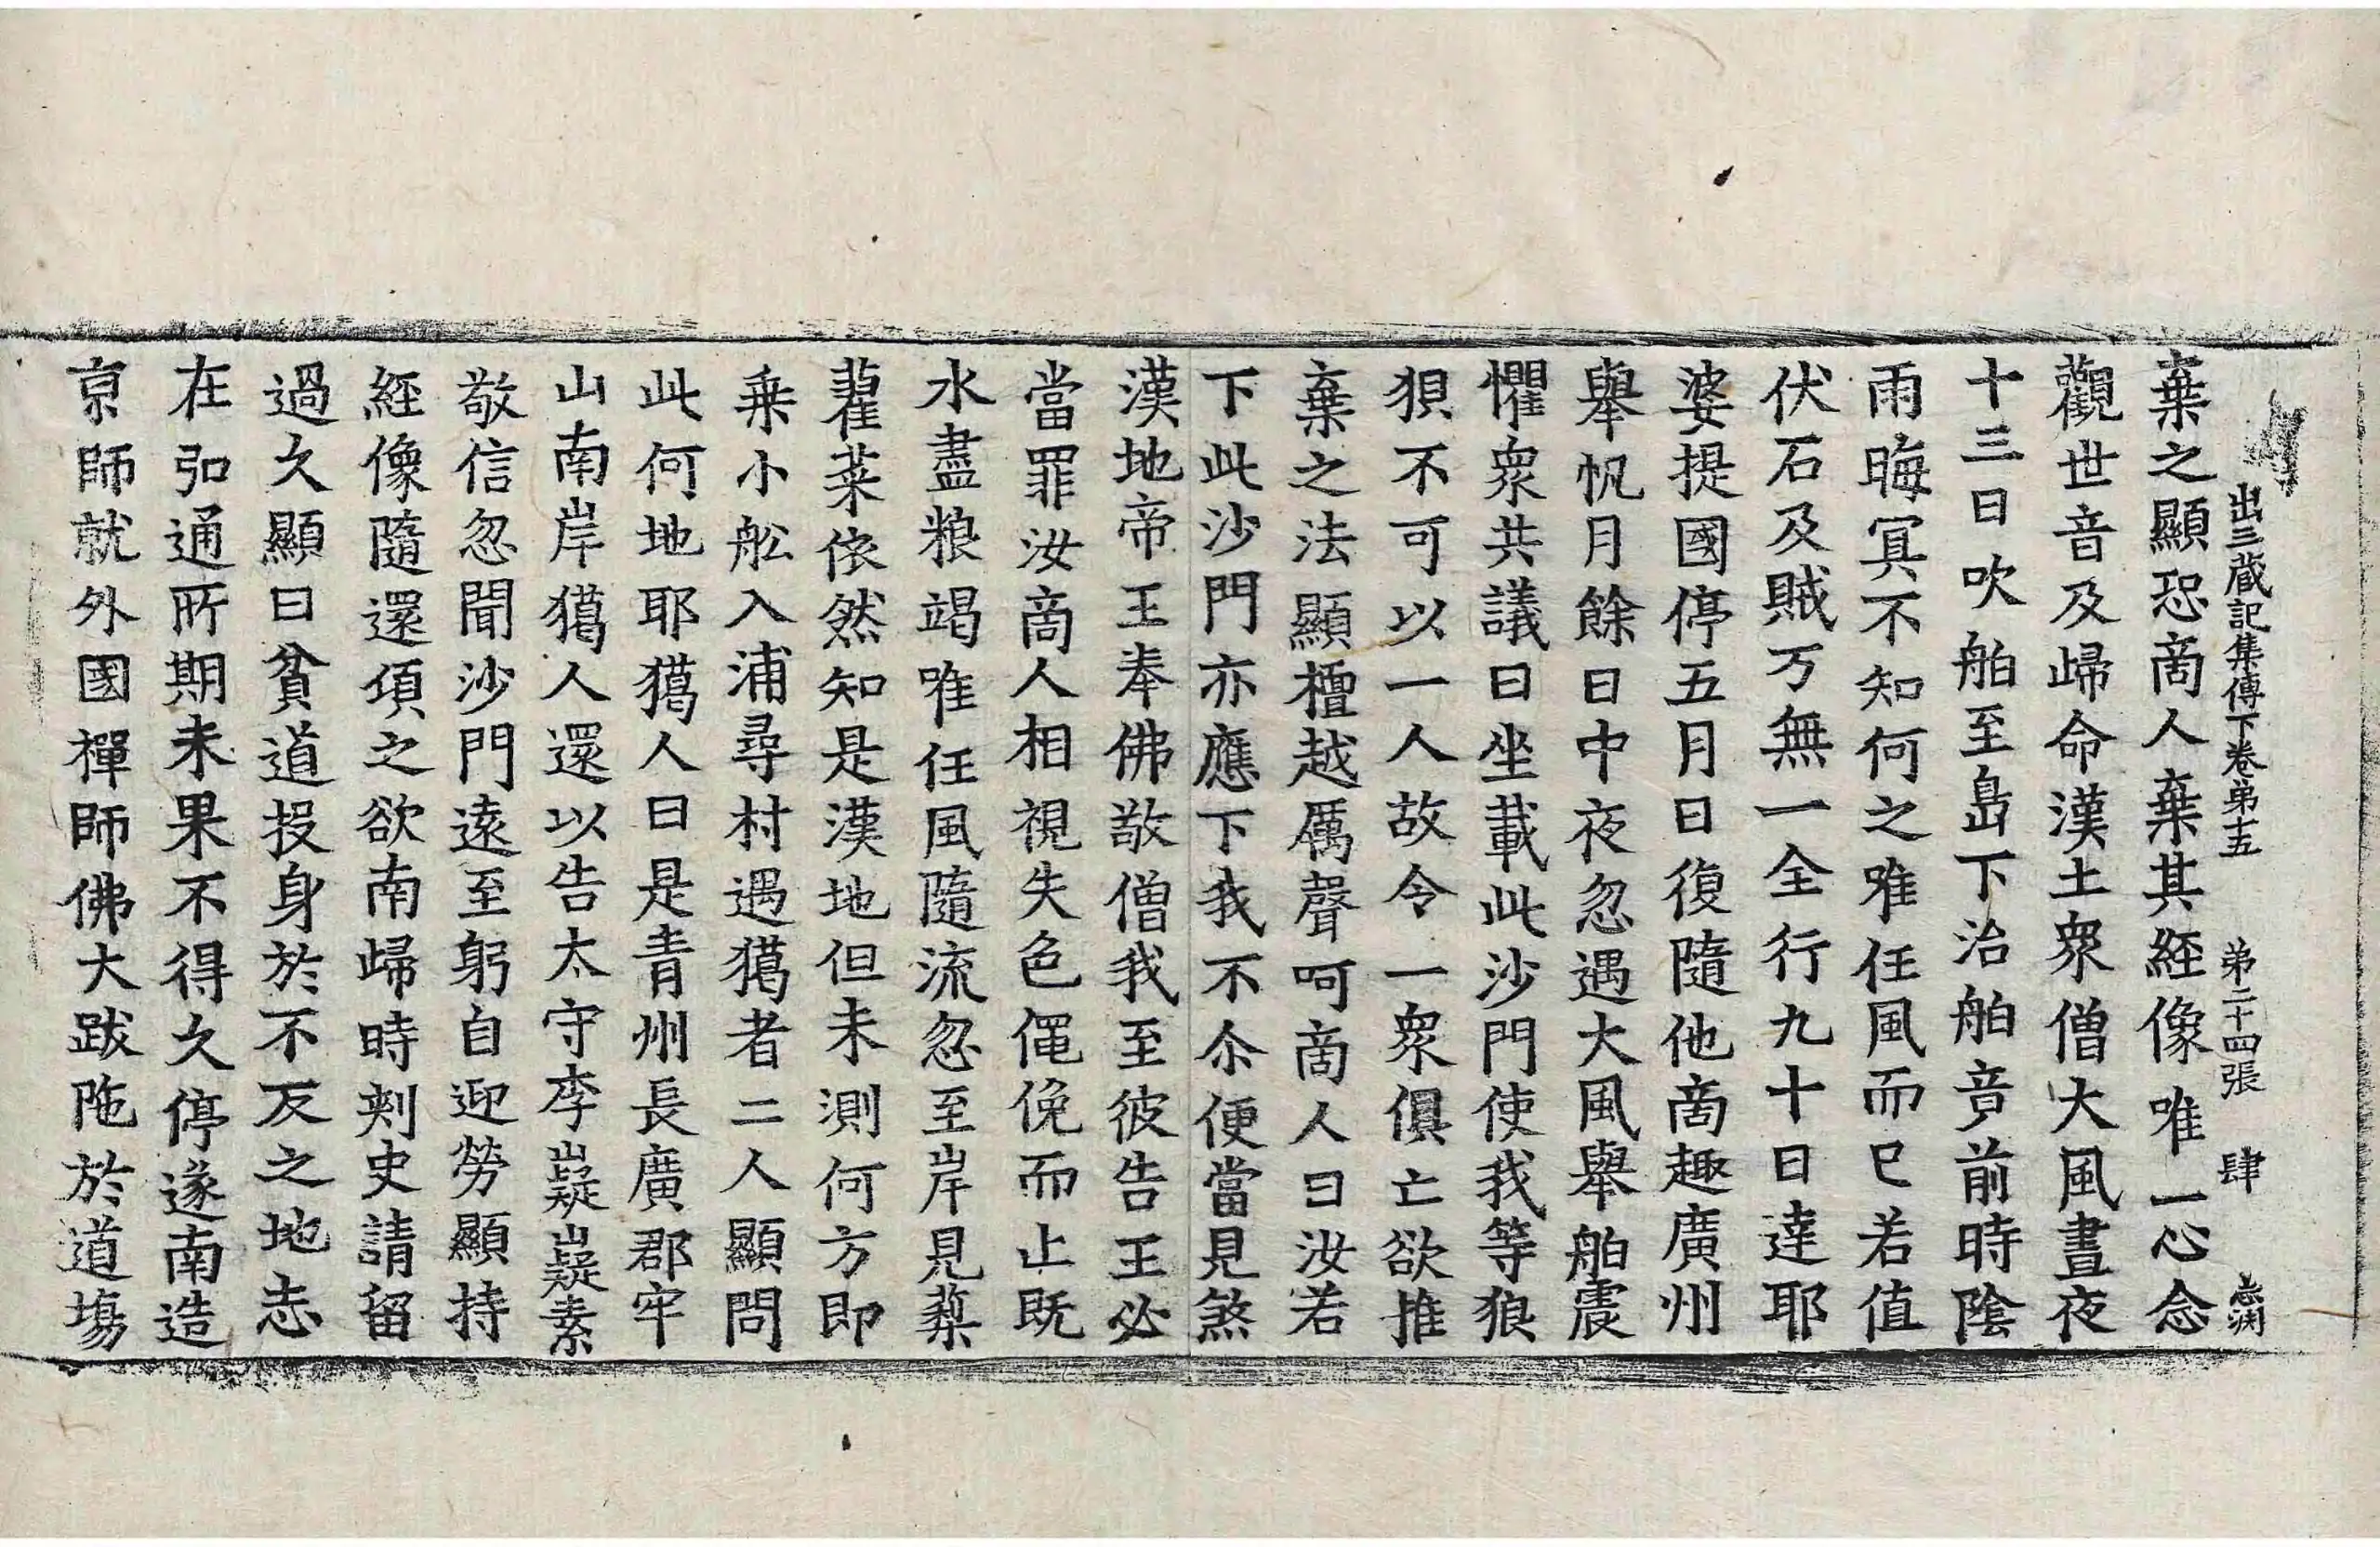 出三藏記集傳下卷第十五 第二十四張 肆 志渕
棄之顯恐商人棄其經像唯一心念
觀世音及歸命漢土衆僧大風晝夜
十三日吹舶至島下治舶竟前時陰
雨晦冥不知何之唯任風而已若值
伏石及賊万無一全行九十日達耶
婆提國停五月日復隨他商趣廣州
舉帆月餘日中夜忽遇大風舉舶震
懼衆共議曰坐載此沙門使我等狼
狽不可以一人故令一衆俱亡欲推
棄之法顯檀越厲聲呵商人曰汝若
下此沙門亦應下我不尒便當見煞
漢地帝王奉佛敬僧我至彼告王必
當罪汝商人相視失色僶俛而止既
水盡粮竭唯任風隨流忽至岸見藜
藋菜依然知是漢地但未測何方即
乗小舩入浦尋村遇獦者二人顯問
此何地耶獦人曰是青州長廣郡牢
山南岸獦人還以告太守李嶷嶷素
敬信忽聞沙門遠至躬自迎勞顯持
經像隨還頃之欲南歸時刾史請留
過久顯曰貧道投身於不反之地志
在弘通所期未果不得久停遂南造
京師就外國禪師佛大跋陁於道場